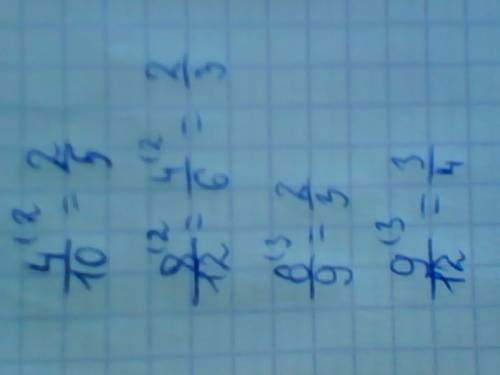 4/10 :2 = 2/5
8/12 :2 = 4/6 :2 = 2/3
6/9 :3 = 2/3
9/12 :3 = 3/4